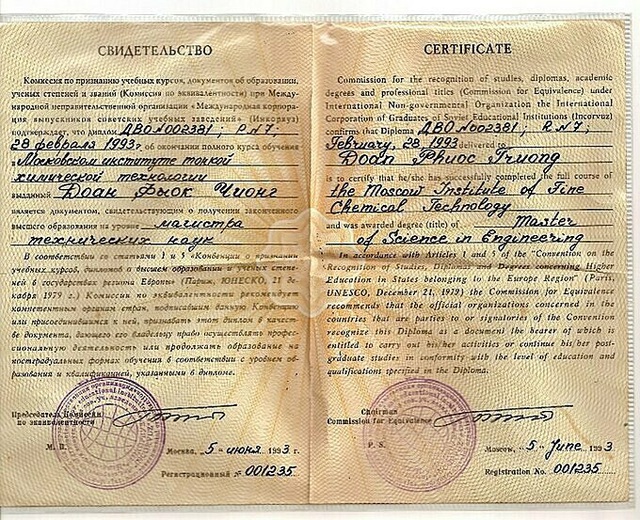 СВИДЕТЕЛЬСТВО
Комиссия по признанию учебных курсов, документов об образовании,
ученых степеней и званий (Комиссия по эквивалентности) при Меж-
дународной неправительственной организации «Международная корпора-
ция выпускников советских учебных заведений» (Инкорвуз)
подтверждает, что диплом ДВО №002381; Р.N 7;
28 февраля 1993г. об окончании полного курса обучения
Московском институте тонкой
химической технологии
выданный Доан Фыок Чионг
является документом, свидетельствующим о получении законченного
высшего образования на уровне магистра
технических наук
В соответствии со статьями 1 и 5 «Конвенции о признании
учебных курсов, дипломов о высшем образовании и ученых степе-
ней в государствах региона Европы» (Париж, ЮНЕСКО, 21 де-
кабря 1979 г.) Комиссия по эквивалентности рекомендует
компетентным органам стран, подписавшим данную Конвенцию
или присоединившихся к ней, признавать этот диплом в качест-
ве документа, дающего его владельцу право осуществлять профес-
сиональную деятельность или продолжать образование на
постградуальных формах обучения в соответствии с уровнем об-
разования и квалификацией, указанными в дипломе.
Председатель Комиссии
по эквивалентности
М. П.
Москва, 5 - июня 1993 г.
Регистрационный № 001235
CERTIFICATE
Commission for the recognition of studies, diplomas, academic
degrees and professional titles (Commission for Equivalence) under
International Non-governmental Organization the International
Corporation of Graduates of Soviet Educational Institutions (Incorvuz)
confirms that Diploma ДВО №002381; R.N 7;
February, 28, 1993 delivered to
Doan Phuoc Truong
is to certify that he/she has successfully completed the full course of
the Moscow Institute of Fine
Chemical Technology
and was awarded degree (title) of Master
of Science in Engineering
In accordance with Articles 1 and 5 of the "Convention on the
Recognition of Studies, Diplomas and Degrees concerning Higher
Education in States belonging to the Europe Region" (Paris,
UNESCO, December, 21, 1979) the Commission for Equivalence
recommends that the official organizations concerned in the
countries that are parties to or signatories of the Convention
recognize this Diploma as a document the bearer of which is
entitled to carry out his/her activities or continue his/her post-
graduate studies in conformity with the level of education and
qualifications specified in the Diploma.
Chairman
Commission for Equivalence
P. S.
Moscow, 5 - June 1993
Registration No. 001235